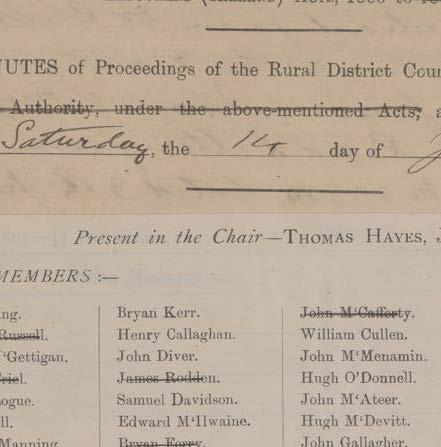 NUTES of Proceedings of the Rural District Coun
Authority, under the above-mentioned Acts, a
Saturday, the 14 day of J
Present in the Chair—THOMAS HAYES, J
MEMBERS :—
ng. Bryan Kerr. John M‘Cafferty.
Russell. Henry Callaghan. William Cullen.
‘Gettigan. John Diver. John M‘Menamin.
riel. James Rodden. Hugh O’Donnell.
ogue. Samuel Davidson. John M‘Ateer.
ll. Edward M‘Ilwaine. Hugh M‘Devitt.
Manning. Bryan Ferry. John Gallagher.